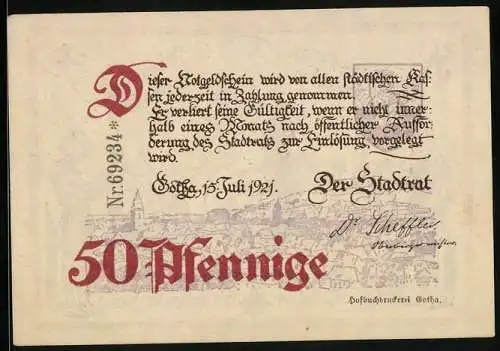 Dieser Notgeldschein wird von allen städtischen Kas-
sen jederzeit in Zahlung genommen.
Er verliert seine Gültigkeit, wenn er nicht inner-
halb eines Monats nach öffentlicher Auffor-
derung des Stadtrats zur Einlösung vorgelegt
wird.
Gotha, 15. Juli 1921. Der Stadtrat
Dr. Scheffler
Oberbürgermeister
Nr. 69234 *
50 Pfennige
Hofbuchdruckerei Gotha.